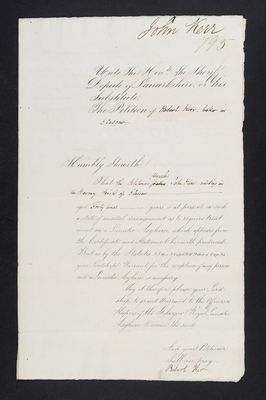 John Kerr
795
Unto The Honble The Sheriff
Depute of Lanarkshire, or his
Substitute,
The Petition of Robert Kerr, baker in
Glasgow
Humbly Sheweth
That the Petitioner's John Kerr residing in
in Glasgow
aged Forty years is at present in such
a state of mental derangement as to require treat
ment in a Lunatic Asylum, which appears from
the Certificate and Statement herewith produced.
But as by the Statutes
your Lordship's Warrant for the reception of any person
into a Lunatic Asylum is necessary
May it therefore please your Lord
ship to grant Warrant to the
Keepers of the Glasgow Royal Lunatic
Asylum to receive the said
And your Petitioner
shall ever pray.
Robert Kerr